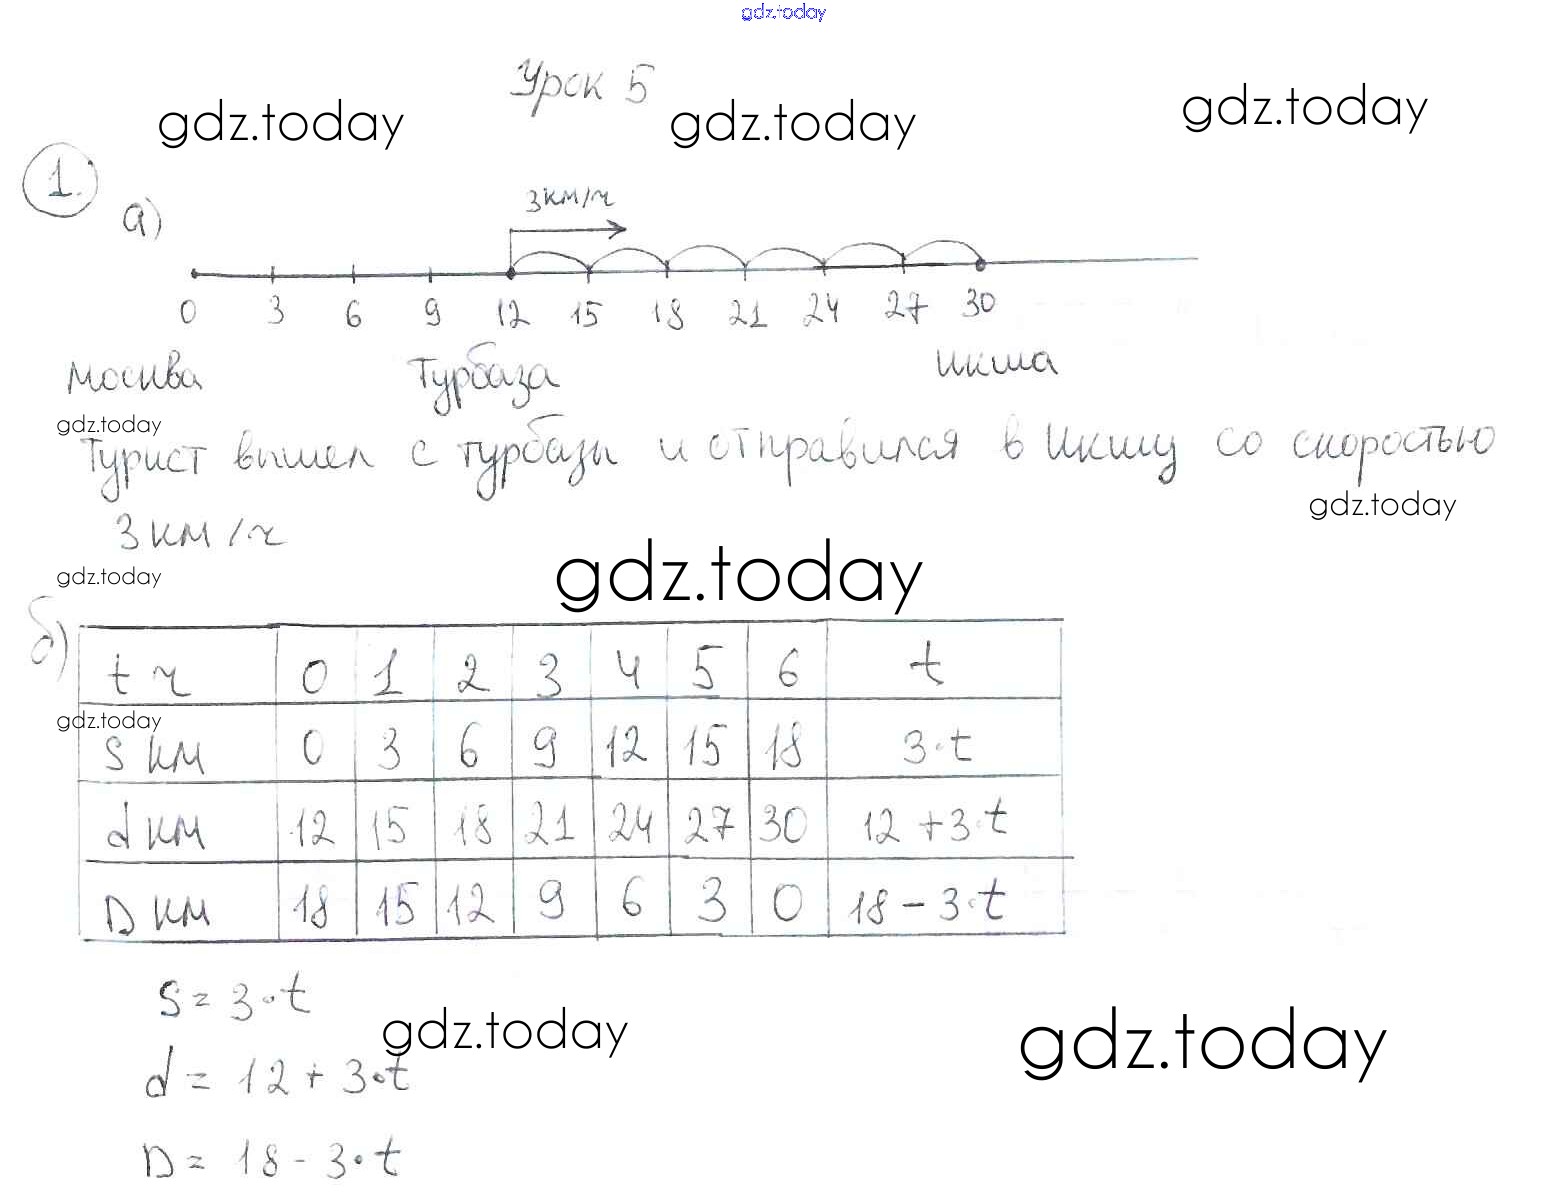 gdz.today
Урок 5
gdz.today gdz.today gdz.today
1.
а)
3 км/ч
0 3 6 9 12 15 18 21 24 27 30
Москва Турбаза Икша
gdz.today
Турист вышел с турбазы и отправился в Икшу со скоростью
gdz.today
3 км/ч
gdz.today
gdz.today
б)
t ч 0 1 2 3 4 5 6 t
gdz.today
s км 0 3 6 9 12 15 18 3·t
d км 12 15 18 21 24 27 30 12 + 3·t
D км 18 15 12 9 6 3 0 18 - 3·t
s = 3·t
gdz.today gdz.today
d = 12 + 3·t
D = 18 - 3·t